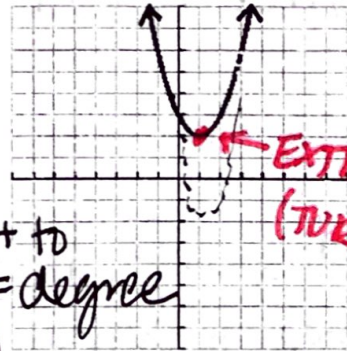 EXT
(TUR
+ to
= degree